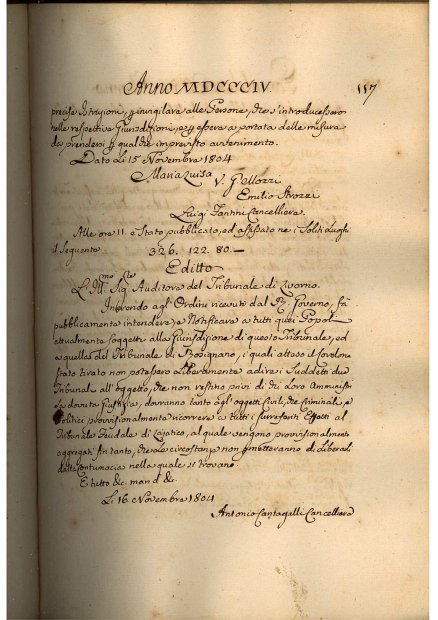 Anno MDCCCIV 117
precise Istruzioni, invigilare alle Persone, che s'introducessero
nelle respettive Giurisdizioni, e essere a portata delle misure
da prendersi qualche imprevisto avvenimento.
Dato li 15 Novembre 1804
Maria Luisa
V. Gellozzi
Emilio Strozzi
Luigi Fantini Cancelliere.
Alle ore 11. è stato pubblicato, ed affissato ne i Soliti Luoghi
il Sequente 326. 122. 80.—
Editto
L'Ill.mo Sig. Auditore del Tribunale di Livorno.
Inerendo agl'Ordini ricevuti dal R. Governo, fà
pubblicamente intendere, e Notificare a tutti quei Popoli
attualmente soggetti alla Giurisdizione di questo Tribunale, ed
a quella del Tribunale di Rosignano, i quali atteso il Cordone
stato tirato non potessero Liberamente adire i Suddetti due
Tribunali all'oggetto, che non restino privi di
La dovuta Giustizia, dovranno tanto agl'oggetti Civili, che Criminali, e
Politici provvisionalmente ricorrere a tutti i surreferiti Effetti al
Tribunale Feudale di Lajatico, al quale vengono provvisionalmente
aggregati In tanto, che le circostanze non permetteranno di liberarli
dalla Contumacia nella quale si trovano.
E tutto &c. mand. &c.
Li 16 Novembre 1804
Antonio Cantagalli Cancelliere